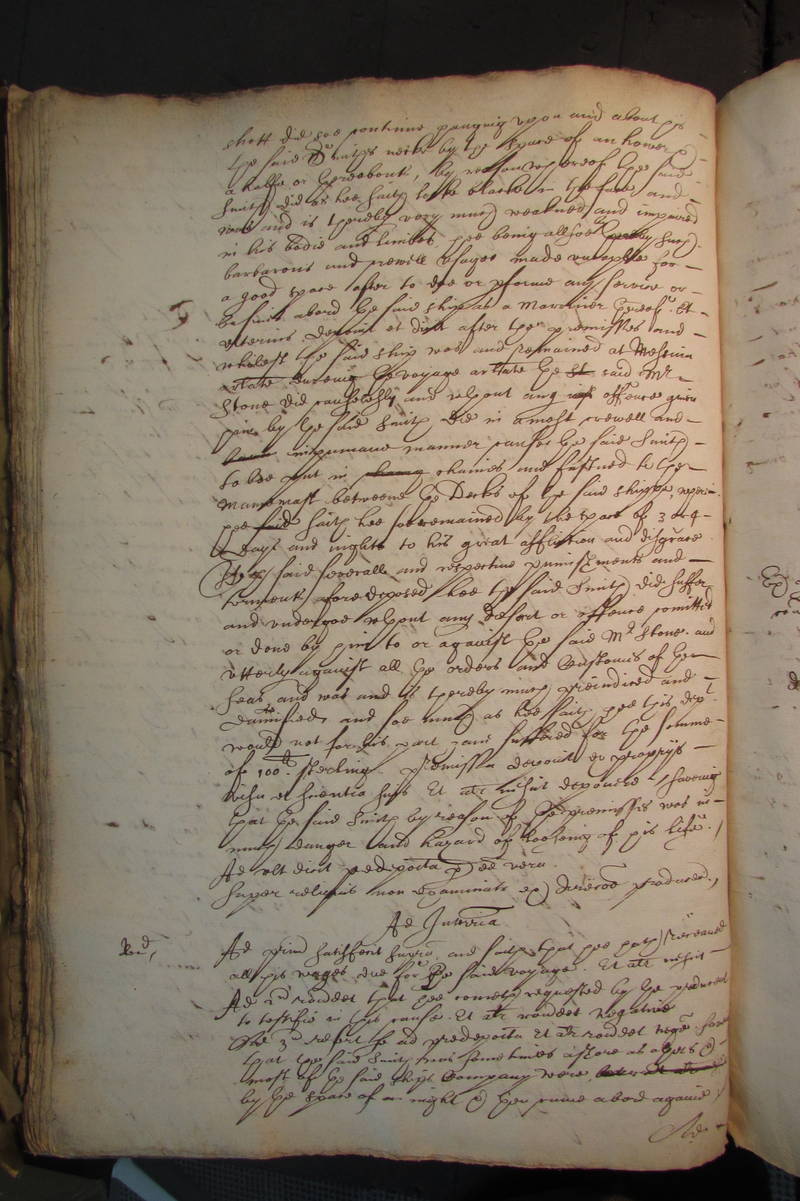 shott did soe continue hanging upon and about his
the said Smiths necke by the space of an hower &
a halfe or thereabouts, by reason whereof hee the said
Smith did as hee saith looke blacke in the face and
was and is thereby very much weakned and impaired
in his bodie and limbes, hee being alsoe by such
barbarous and crewell usages made uncapable for
a good space after to doe or performe any service or
busines abord the said ship as a Marriner thereof. Et
ulterius deponit et dicit after the premisses and
whilest the said ship was and remained at Messina
the voyage arlate the said Mr
Stone did causelessly and without any offence given
him by the said Smith did in a most crewell and
inhumane manner cause the said Smith
to bee put in chaines and fastned to the
Mainemast betweene the Decks of the said shipp, wherein
hee saith hee soe remained by the space of 3 or 4
dayes and nights to his great affliction and disgrace
said severall and respective punishments and
torments aforedeposed hee the said Smith did suffer
and undergoe without any desert or offence comitted
or done by him to or against the said Mr Stone. and
utterly against all the orders and Customes of the
Seas and was and is thereby much prejudiced and
damnified, and soe much as hee saith hee this dept
would not for his part have suffered for the summe
of 100 li sterling. Praemissa deponit ex proprijs
visu et scientia suis Et aliter nescit deponere, saveing
that the said Smith by reason of the premisses was in
much danger and hazard of looseing of his life.
Ad ult dicit predeposita per eum esse vera
Super reliquis non examinatur ex direccone producentis
Ad Interria
Ad primum satisfactum supra, and saith that hee hath received
all his wages due for the said voyage. Et aliter nescit
Ad 2d respondet that hee cometh requested by the producent
to testifie in this cause. Et aliter respondet negative
Ad 3 refert se ad predeposita Et aliter respondet negative saveing
that the said Smith was sometimes ashore as others &
most of the said ships Company were
by the space of a night & then came abord againe
Ad